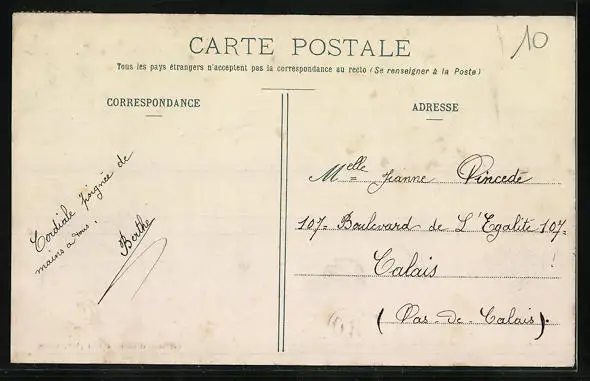 10
CARTE POSTALE
Tous les pays étrangers n'acceptent pas la correspondance au recto (Se renseigner à la Poste)
CORRESPONDANCE
Cordiale poignée de
mains a tous !
Berthe
ADRESSE
Melle Jeanne Vincede
107= Boulevard de L'Egalité 107=
Calais
(Pas-de-Calais).